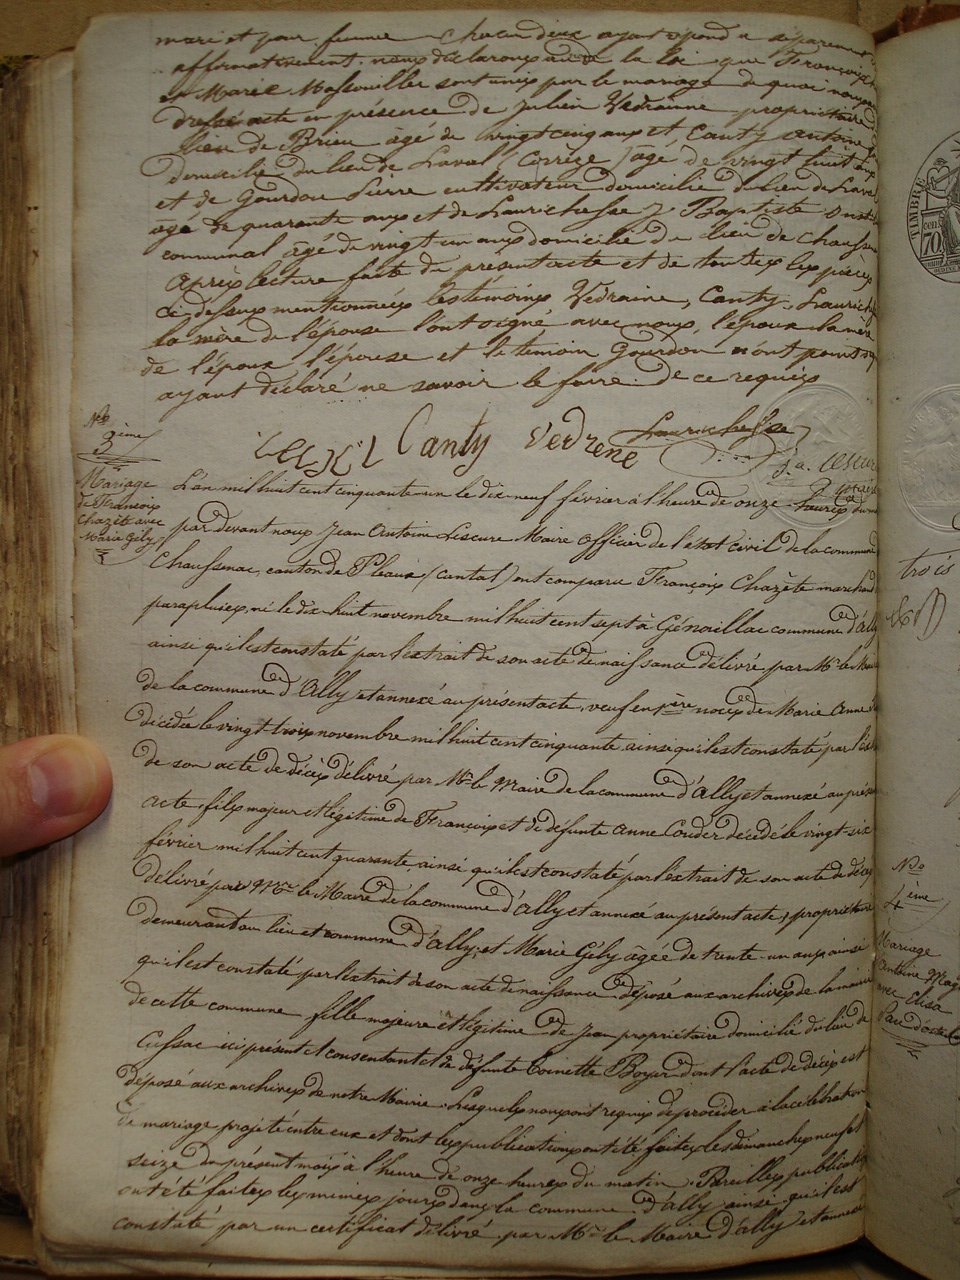 mari et pour femme chacun deux ayant répondu séparement
affirmativement. nous déclarons au de la loi que François
et Marie Massoulier sont unis par le mariage de quoi nous avons
dressé acte en présence de Julien Védrainne propriétaire
lieu de Brieu âgé de vingt cinq ans et Canty antoine
domicilié du lieu de Laval (Corrèze) âgé de vingt huit ans
et de Gourdon Pierre cultivateur domicilié du lieu de Laval
âgé de quarante ans et de Laurichesse J. Baptiste
communal âgé de vingt un ans domicilié du lieu de Chaussenac
Après lecture faite du présent acte et de toutes les pièces
ci dessus mentionnées les témoins Védraine, Canty, Laurichesse
la mère de l'épouse l'ont signé avec nous, l'époux la mère
de l'époux l'épouse et le témoin Gourdon n'ont point
ayant déclaré ne savoir le faire de ce requis
Canty Vedrene Laurichesse
J. A. Lescure
N°
3ième
Mariage
de François
Chazète avec
Marie Gély
L'an mil huit cent cinquante-un le dix neuf février à l'heure de onze
par devant nous Jean Antoine Lescure Maire officier de l'état civil de la commune
Chaussenac, canton de Pleaux (cantal) ont comparu François Chazète marchand
parapluies, né le dix huit novembre mil huit cent sept à Génouillac commune d'Ally
ainsi qu'il est constaté par l'extrait de son acte de naissance délivré par Mr le Maire
de la commune d'Ally et annexé au présent acte, veuf en 1ère noces de Marie Anne
décédée le vingt trois novembre mil huit cent cinquante, ainsi qu'il est constaté par l'ex
de son acte de décès délivré par Mr le Maire de la commune d'Ally et annexé au présent
acte, fils majeur et légitime de François et de défunte Anne Couder décédée le vingt-six
février mil huit cent quarante, ainsi qu'il est constaté par l'extrait de son acte de décès
délivré par Mr le Maire de la commune d'Ally et annexé au présent acte, propriétaire
demeurant au lieu et commune d'Ally, et Marie Gély âgée de trente-un ans ainsi
qu'il est constaté par l'extrait de son acte de naissance déposé aux archives de la mairie
de cette commune, fille majeure et légitime de Jean propriétaire domicilié du lieu de
Cussac ici présent et consentant et de défunte Toinette Boyer dont l'acte de décès est
déposé aux archives de notre Mairie. Lesquels nous ont requis de procéder à la célébration
de mariage projeté entre eux et dont les publications ont été faites les dimanches neuf et
seize du présent mois à l'heure de onze heures du matin. Pareilles publications
ont été faites les mêmes jours dans la commune d'Ally ainsi qu'il est
constaté par un certificat délivré par Mr le Maire d'Ally et annexé
TIMBRE
70
trois
N°
4ième
Mariage
Antoine
avec Elisa